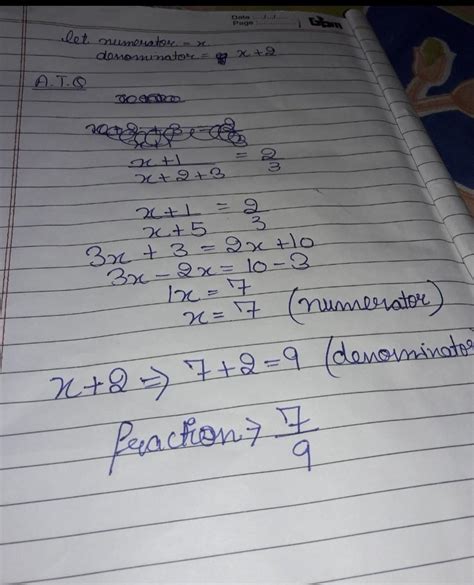 Date : .../.../...
Page :
let numerator = x
denominator = x+2
A.T.Q
x+1 / x+2+3 = 2/3
x+1 / x+5 = 2/3
3x + 3 = 2x+10
3x - 2x = 10 - 3
1x = 7
x = 7 (numerator)
x+2 ⇒ 7+2=9 (denominator
fraction → 7/9